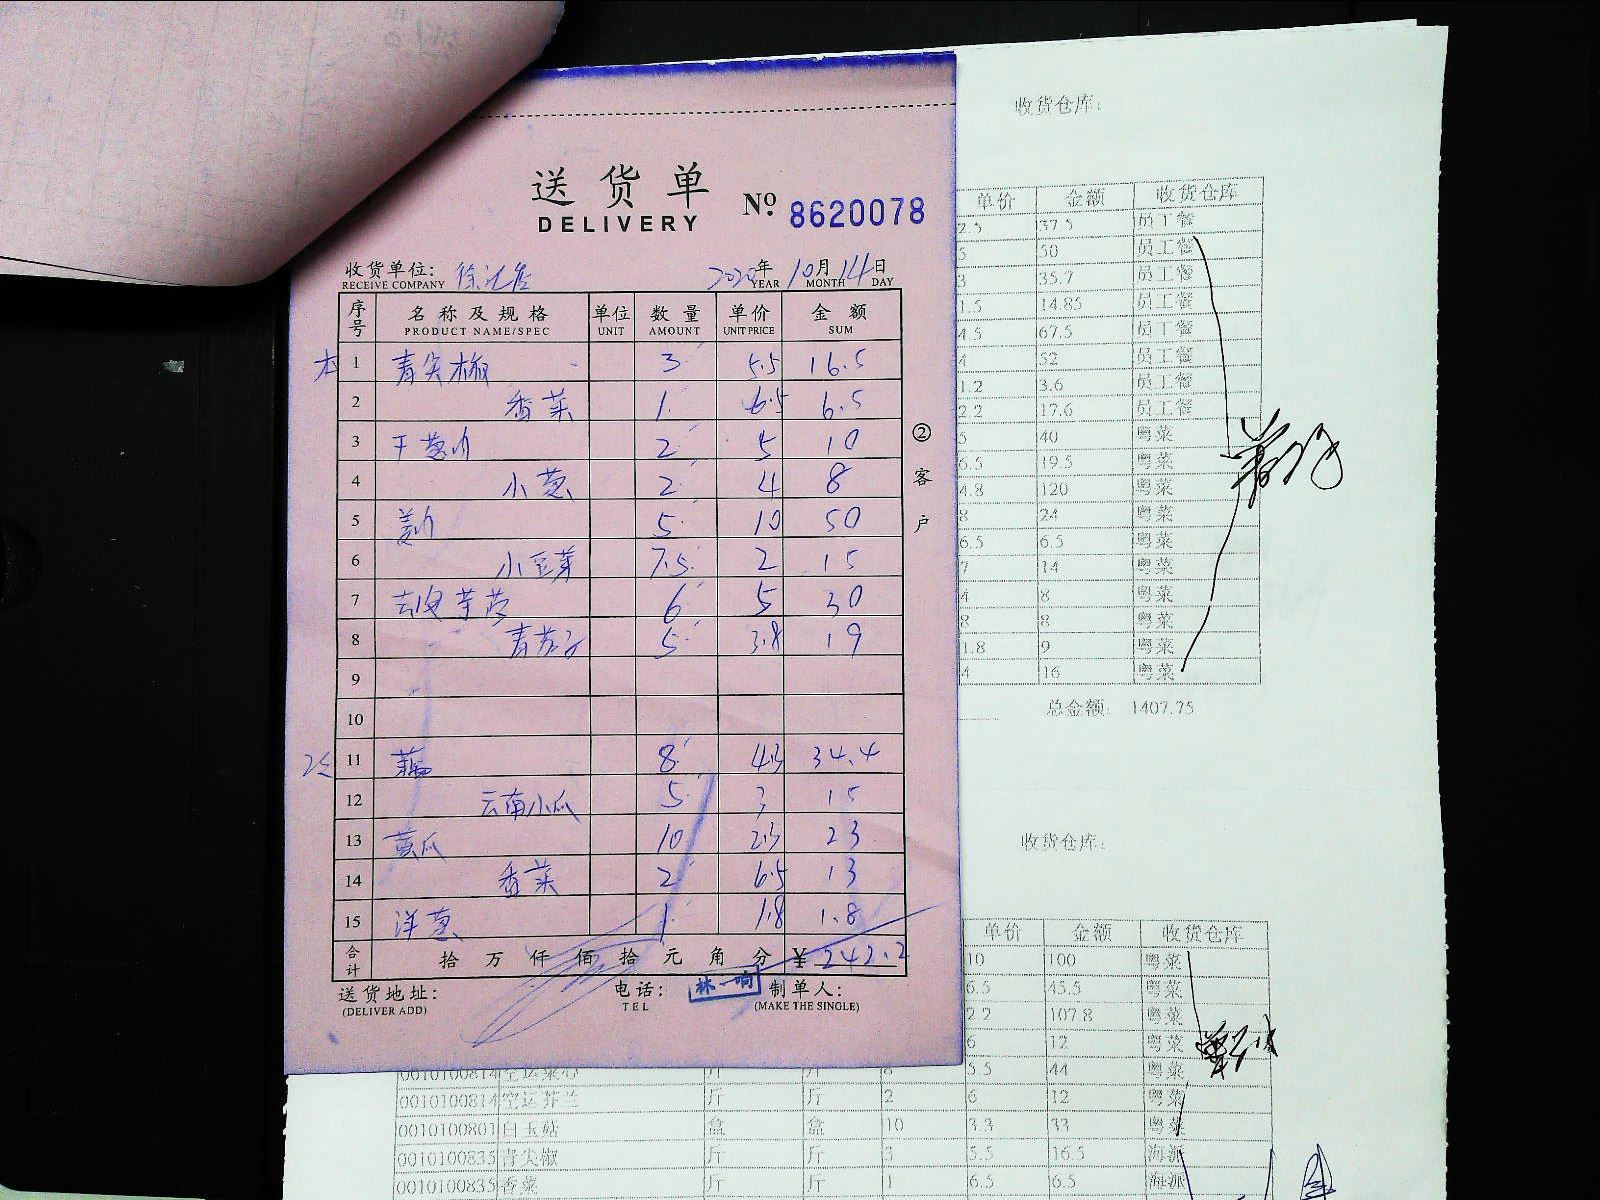 送货单
DELIVERY
No. 8620078
收货单位:
RECEIVE COMPANY
2020年 10月 14日
YEAR MONTH DAY
序号 名称及规格 单位 数量 单价 金额
PRODUCT NAME/SPEC UNIT AMOUNT UNIT PRICE SUM
本 1 青尖椒 3 5.5 16.5
2 香菜 1 6.5 6.5
3 干葱 2 5 10
4 小葱 2 4 8
5 姜 5 10 50
6 小豆芽 7.5 2 15
7 6 5 30
8 青茄子 5 3.8 19
9
10
11 藕 8 4.3 34.4
12 云南小瓜 5 3 15
13 黄瓜 10 2.3 23
14 香菜 2 6.5 13
15 洋葱 1 1.8 1.8
合计 拾 万 仟 佰 拾 元 角 分 ¥ 242.2
送货地址: 电话: 林一响 制单人:
(DELIVER ADD) TEL (MAKE THE SINGLE)
②客户
收货仓库:
单价 金额 收货仓库
2.5 37.5 员工餐
5 50 员工餐
3 35.7 员工餐
1.5 14.85 员工餐
4.5 67.5 员工餐
4 52 员工餐
1.2 3.6 员工餐
2.2 17.6 员工餐
5 40 粤菜
6.5 19.5 粤菜
4.8 120 粤菜
8 24 粤菜
6.5 6.5 粤菜
7 14 粤菜
4 8 粤菜
8 8 粤菜
1.8 9 粤菜
4 16 粤菜
总金额: 1407.75
收货仓库:
单价 金额 收货仓库
10 100 粤菜
6.5 45.5 粤菜
2.2 107.8 粤菜
6 12 粤菜
0010100814 空运菜心 斤 斤 8 5.5 44 粤菜
0010100814 空运芥兰 斤 斤 2 6 12 粤菜
0010100801 白玉菇 盒 盒 10 3.3 33 粤菜
0010100835 青尖椒 斤 斤 3 5.5 16.5 海派
0010100835 香菜 斤 斤 1 6.5 6.5 海派